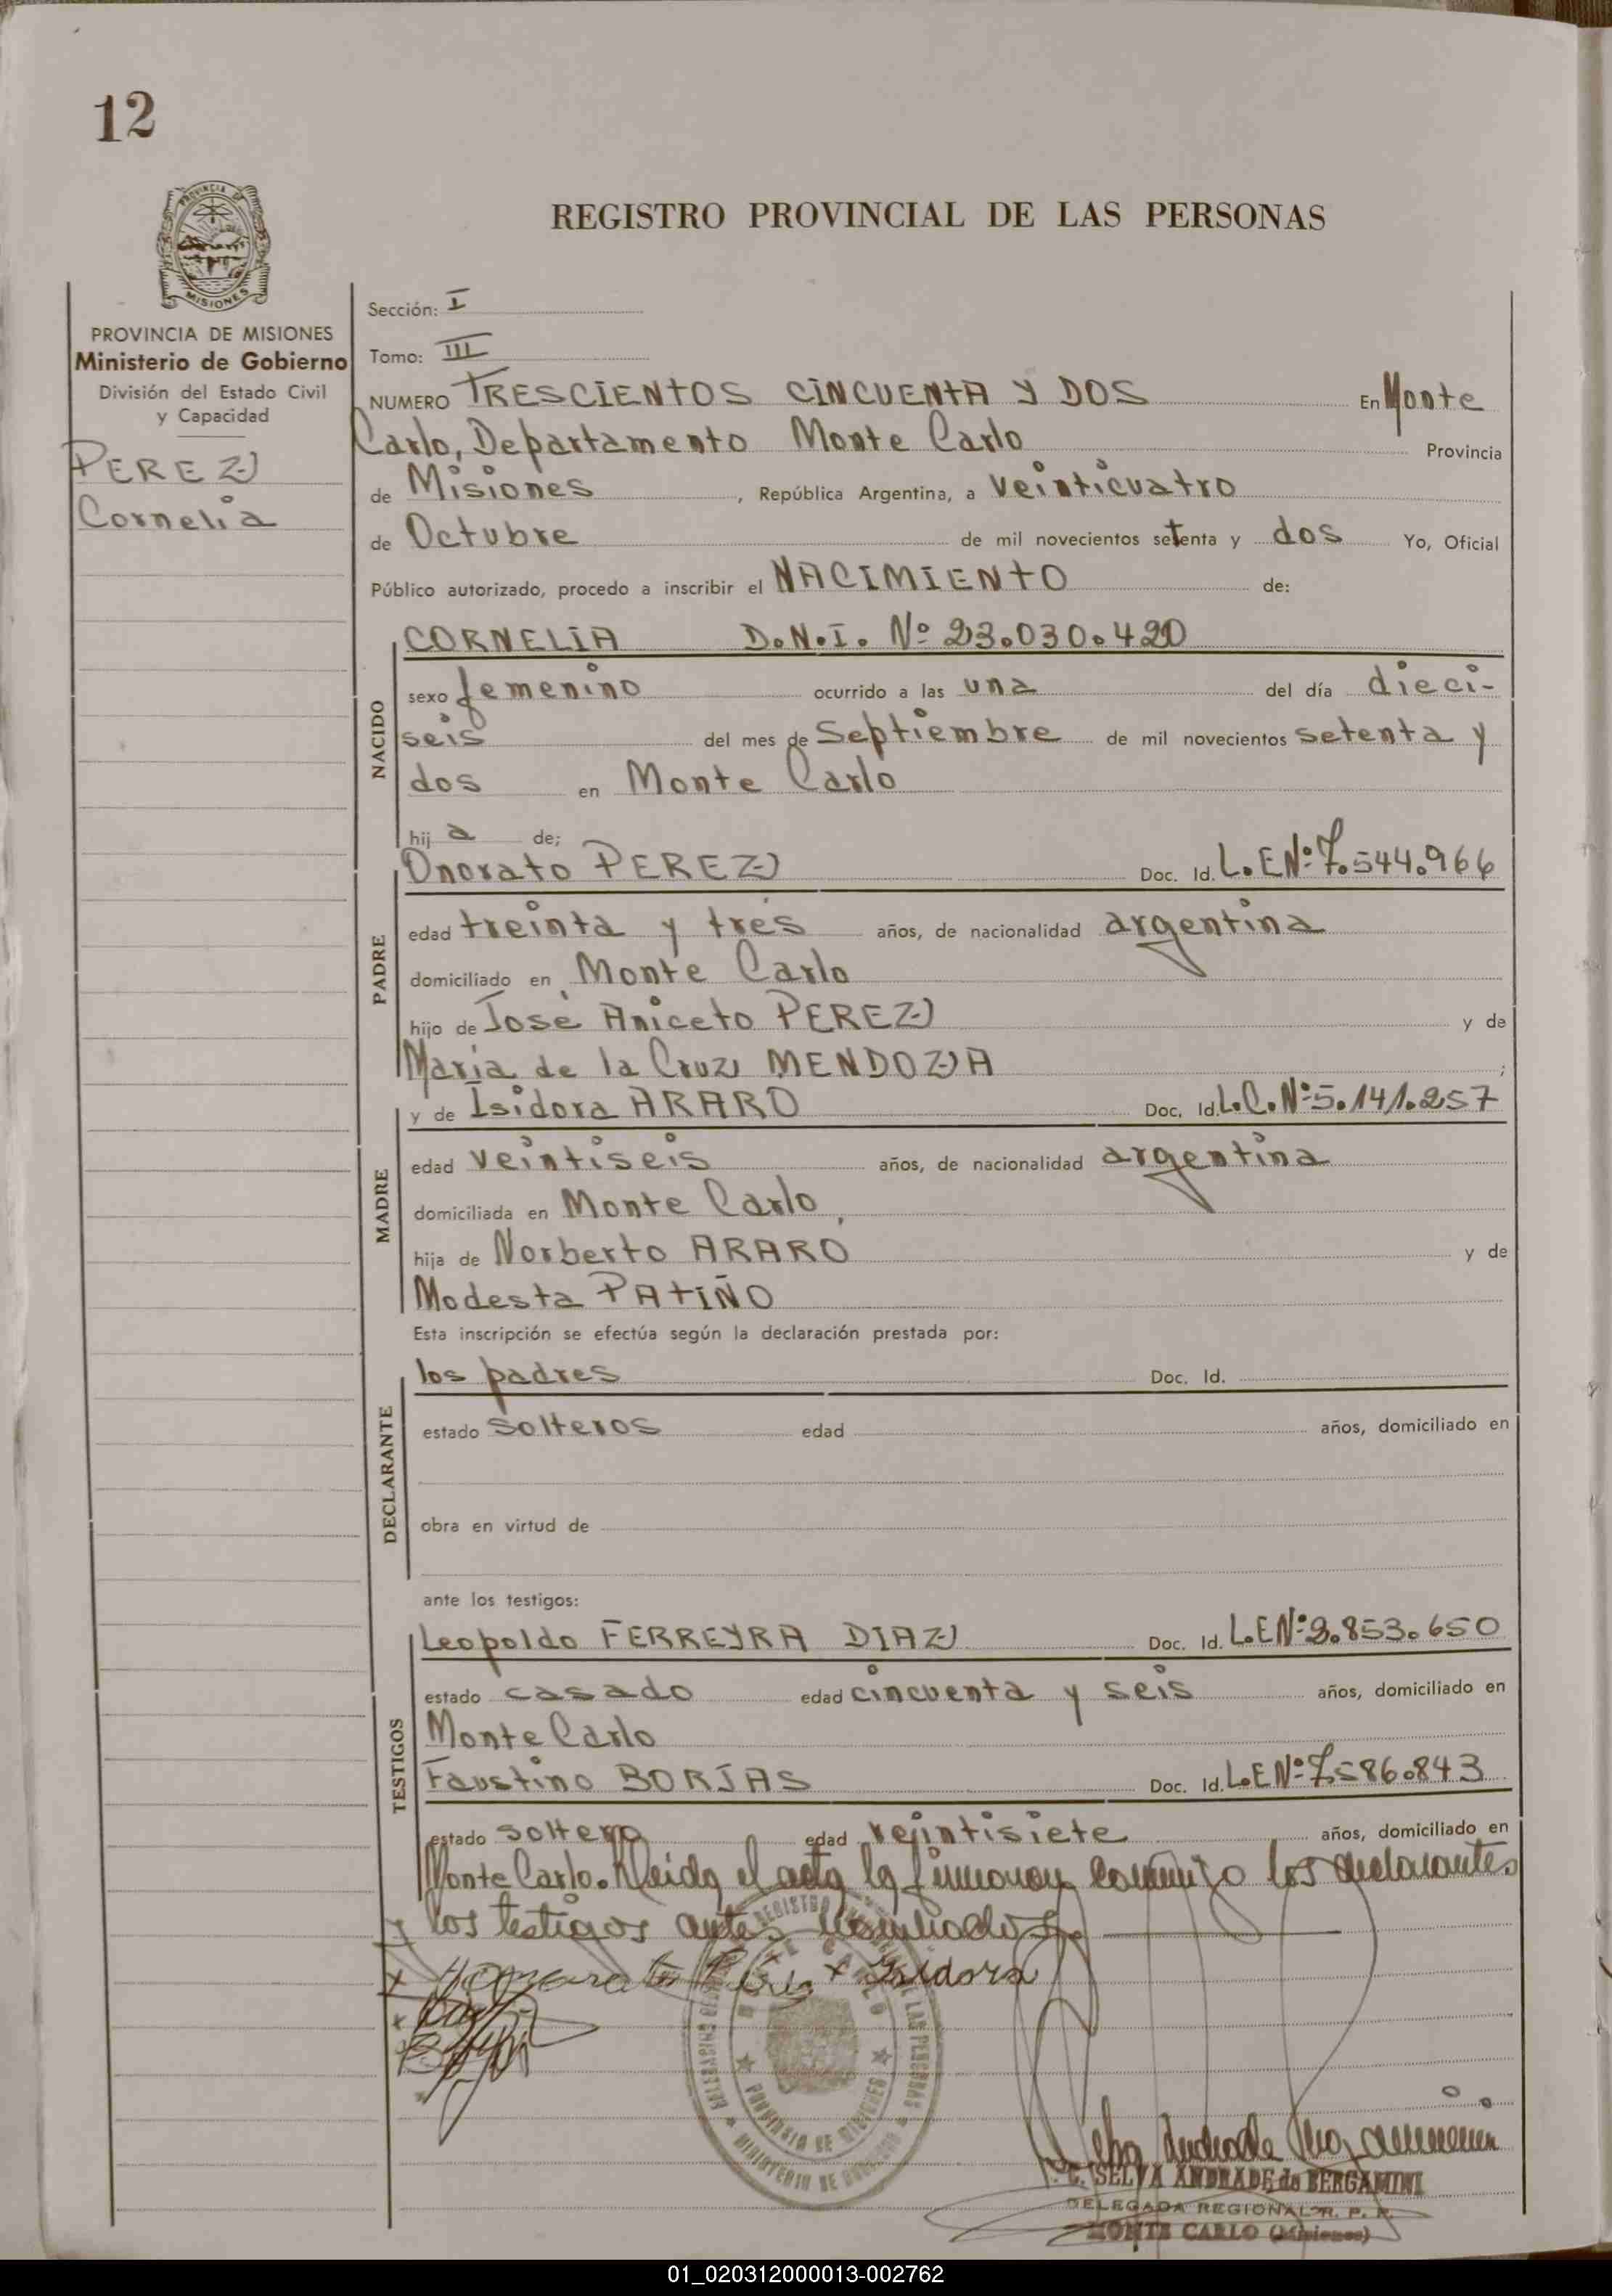 12
PROVINCIA DE
MISIONES
REGISTRO PROVINCIAL DE LAS PERSONAS
PROVINCIA DE MISIONES
Ministerio de Gobierno
División del Estado Civil
y Capacidad
PEREZ
Cornelia
Sección: I
Tomo: III
NUMERO TRESCIENTOS CINCUENTA Y DOS En Monte
Carlo, Departamento Monte Carlo Provincia
de Misiones, República Argentina, a veinticuatro
de Octubre de mil novecientos setenta y dos Yo, Oficial
Público autorizado, procedo a inscribir el NACIMIENTO de:
NACIDO
CORNELIA D.N.I. Nº 23.030.420
sexo femenino ocurrido a las una del día dieci-
seis del mes de Septiembre de mil novecientos setenta y
dos en Monte Carlo
hija de;
PADRE
Onorato PEREZ Doc. Id. L.E.Nº 7.544.966
edad treinta y tres años, de nacionalidad argentina
domiciliado en Monte Carlo
hijo de José Aniceto PEREZ y de
María de la Cruz MENDOZA ;
MADRE
y de Isidora ARARO Doc. Id. L.C.Nº 5.141.257
edad veintiseis años, de nacionalidad argentina
domiciliada en Monte Carlo,
hija de Norberto ARARO y de
Modesta PATIÑO
Esta inscripción se efectúa según la declaración prestada por:
DECLARANTE
los padres Doc. Id.
estado solteros edad años, domiciliado en
obra en virtud de
ante los testigos:
TESTIGOS
Leopoldo FERREYRA DIAZ Doc. Id. L.E.Nº 3.853.650
estado casado edad cincuenta y seis años, domiciliado en
Monte Carlo
Faustino BORJAS Doc. Id. L.E.Nº 7.586.843
estado soltero edad veintisiete años, domiciliado en
Monte Carlo. Leida el acta la firmaron conmigo los declarantes
y los testigos antes nombrados
Isidora
REGISTRO DE LAS PERSONAS
MONTE CARLO
PROVINCIA DE MISIONES
MINISTERIO DE GOBIERNO
C. SELVA ANDRADE de BERGAMINI
DELEGADA REGIONAL R. P. P.
MONTE CARLO (Misiones)
01_020312000013-002762